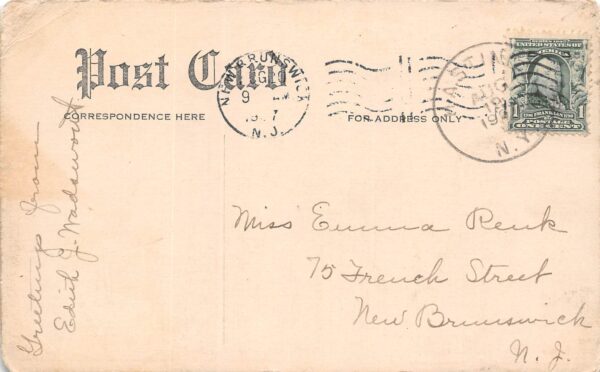 Post Card
CORRESPONDENCE HERE
FOR ADDRESS ONLY
NEW BRUNSWICK
9
N.J.
N.Y.
SERIES 1902
UNITED STATES OF AMERICA
1
FRANKLIN
POSTAGE
ONE CENT
1
Greetings from
Edith J. Wadsworth
Miss Emma Renk
75 French Street
New Brunswick
N. J.